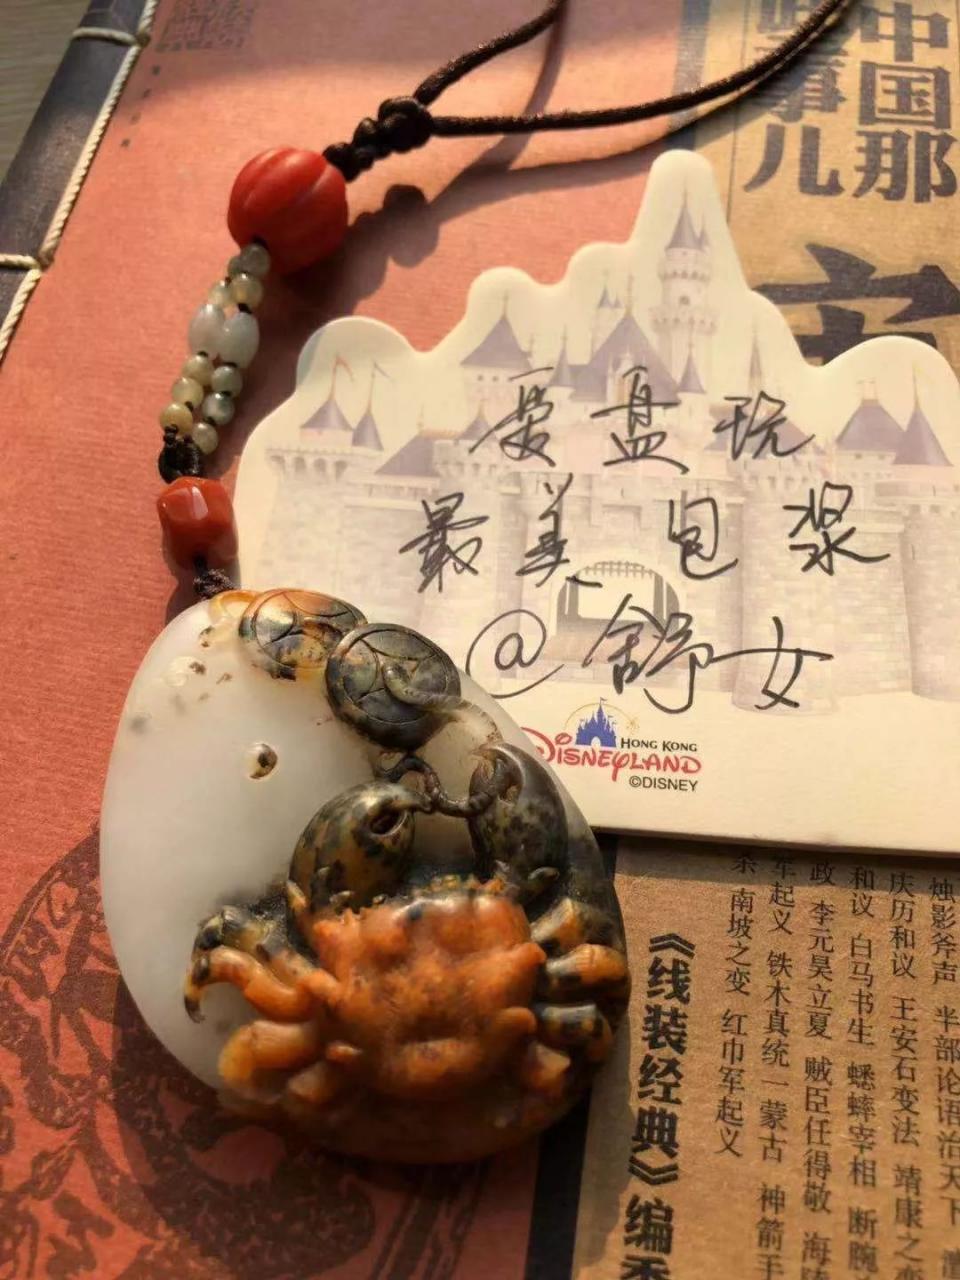 中国那
些事儿
爱盘玩
最美包浆
@舒女
HONG KONG
DISNEYLAND
©DISNEY
烛影斧声 半部论语治天下
庆历和议 王安石变法 靖康之
和议 白马书生 蟋蟀宰相 断腕
政 李元昊立夏 贼臣任得敬 海
军起义 铁木真统一蒙古 神箭手
南坡之变 红巾军起义
《线装经典》编